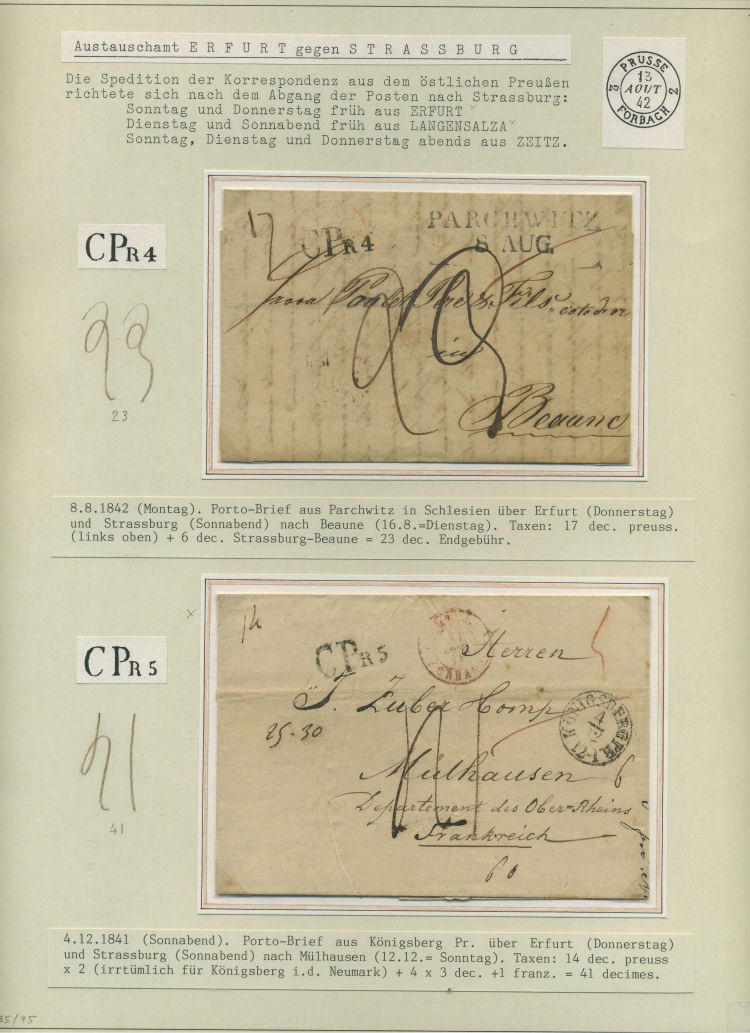 Austauschamt E R F U R T gegen S T R A S S B U R G
PRUSSE
2 13 2
AOUT
42
FORBACH
Die Spedition der Korrespondenz aus dem östlichen Preußen
richtete sich nach dem Abgang der Posten nach Strassburg:
Sonntag und Donnerstag früh aus ERFURT
Dienstag und Sonnabend früh aus LANGENSALZA
Sonntag, Dienstag und Donnerstag abends aus ZEITZ.
CPR4
23
23
17
CPR4
PARCHWITZ
8 AUG.
23
Fils
in
Beaune
8.8.1842 (Montag). Porto-Brief aus Parchwitz in Schlesien über Erfurt (Donnerstag)
und Strassburg (Sonnabend) nach Beaune (16.8.=Dienstag). Taxen: 17 dec. preuss.
(links oben) + 6 dec. Strassburg-Beaune = 23 dec. Endgebühr.
x
CPR5
41
41
14
CPR5
Herren
J. Zuber & Comp
KÖNIGSBERG PR.
4
12
25-30
41
Mülhausen 6
Departement des Ober-Rheins
Frankreich
60
4.12.1841 (Sonnabend). Porto-Brief aus Königsberg Pr. über Erfurt (Donnerstag)
und Strassburg (Sonnabend) nach Mülhausen (12.12.= Sonntag). Taxen: 14 dec. preuss
x 2 (irrtümlich für Königsberg i.d. Neumark) + 4 x 3 dec. +1 franz. = 41 decimes.
35/95